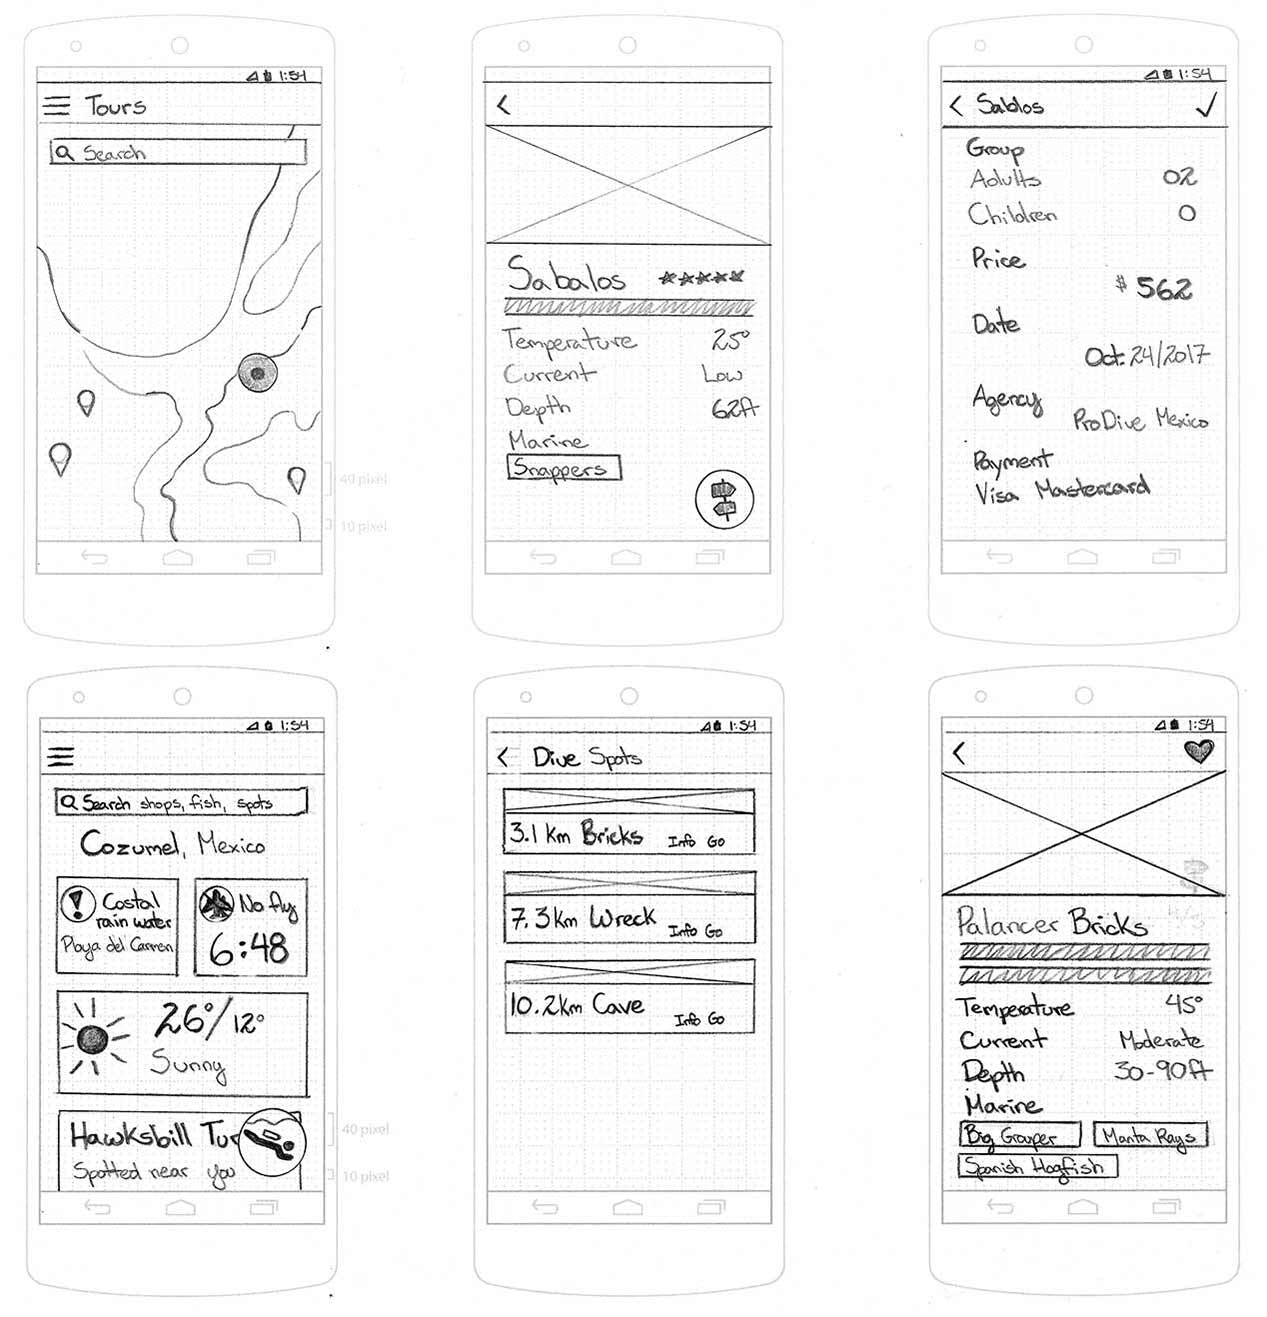 1:54
Tours
Search
40 pixel
10 pixel
Sabalos
Temperature 25°
Current Low
Depth 62ft
Marine
Snappers
1:54
Sablos
Group
Adults 02
Children 0
Price
$ 562
Date
Oct. 24/2017
Agency
ProDive Mexico
Payment
Visa Mastercard
1:54
Search shops, fish, spots
Cozumel, Mexico
Costal
rain water
Playa del Carmen
No fly
6:48
26°/12°
Sunny
Hawksbill Tur
Spotted near you
40 pixel
10 pixel
1:54
Dive Spots
3.1 km Bricks Info Go
7.3km Wreck Info Go
10.2km Cave Info Go
1:54
Palancer Bricks
Temperature 45°
Current Moderate
Depth 30-90ft
Marine
Big Grouper Manta Rays
Spanish Hogfish